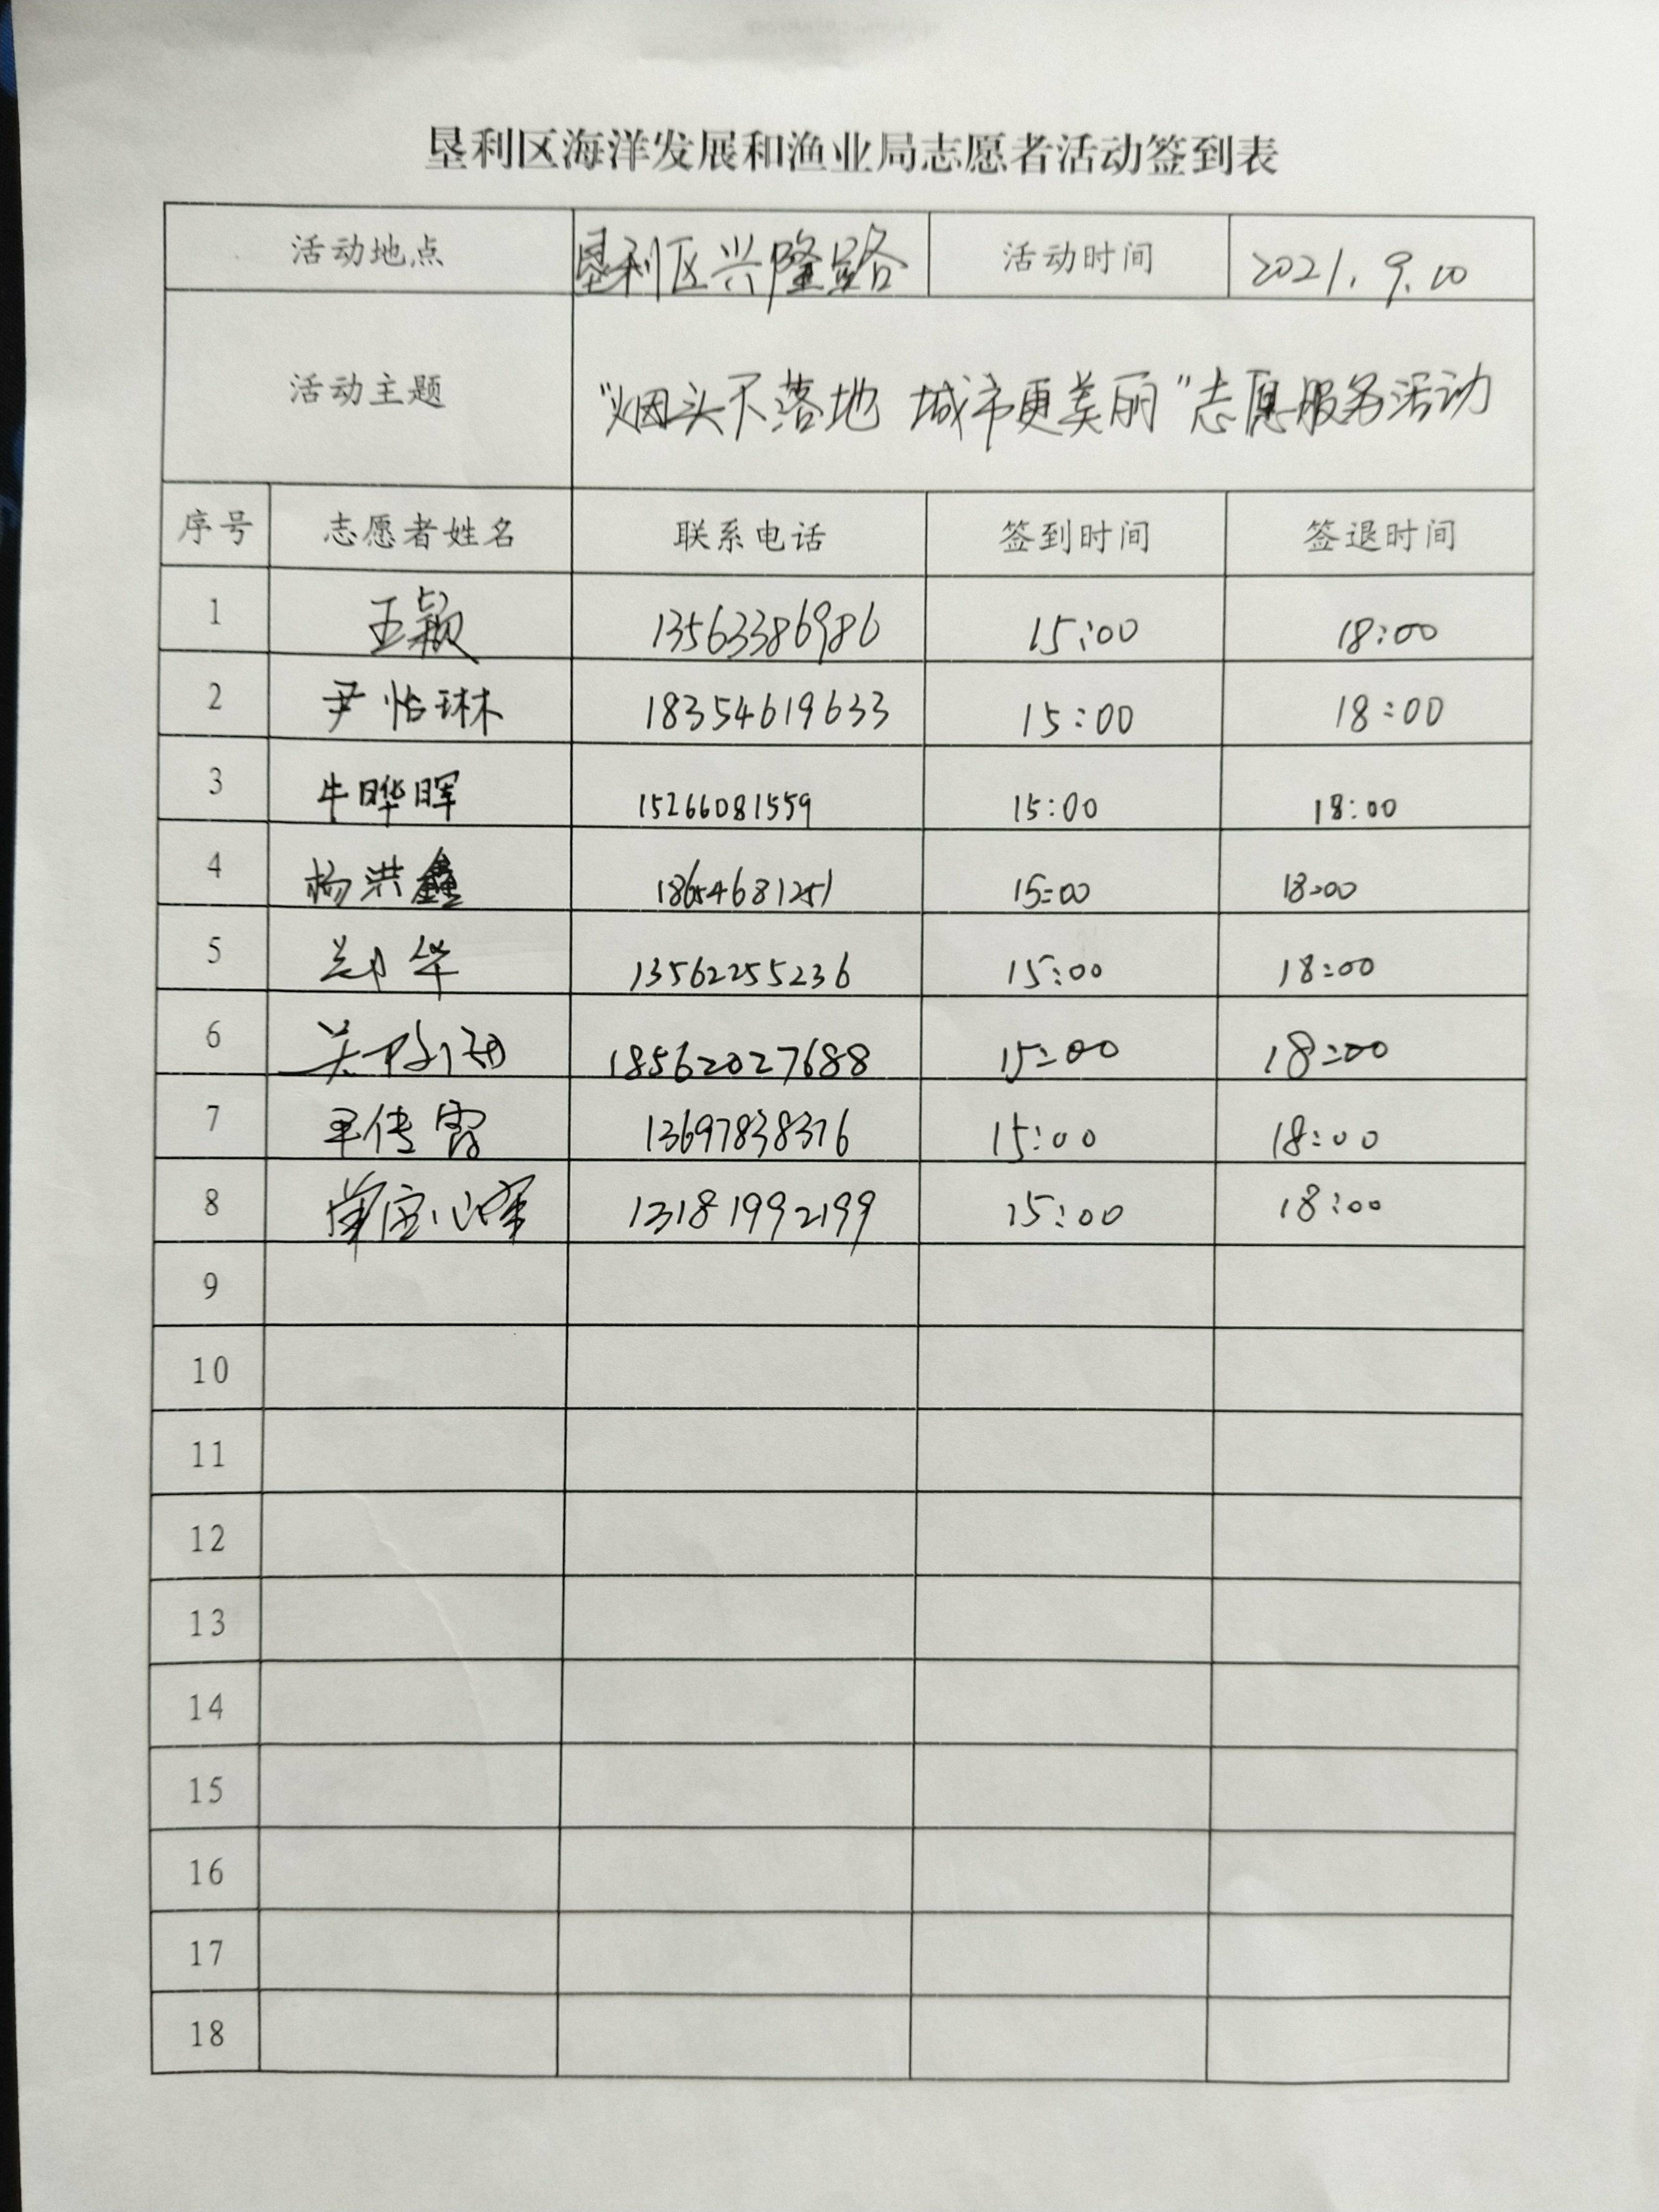 垦利区海洋发展和渔业局志愿者活动签到表
活动地点 垦利区兴隆路 活动时间 2021.9.10
活动主题 “烟头不落地 城市更美丽”志愿服务活动
序号 志愿者姓名 联系电话 签到时间 签退时间
1 王颖 13563386986 15:00 18:00
2 尹怡琳 18354619633 15:00 18:00
3 牛晔晖 15266081559 15:00 18:00
4 杨洪鑫 18654681251 15:00 18:00
5 郑华 13562255236 15:00 18:00
6 18562027688 15:00 18:00
7 13697838376 15:00 18:00
8 13181992199 15:00 18:00
9
10
11
12
13
14
15
16
17
18